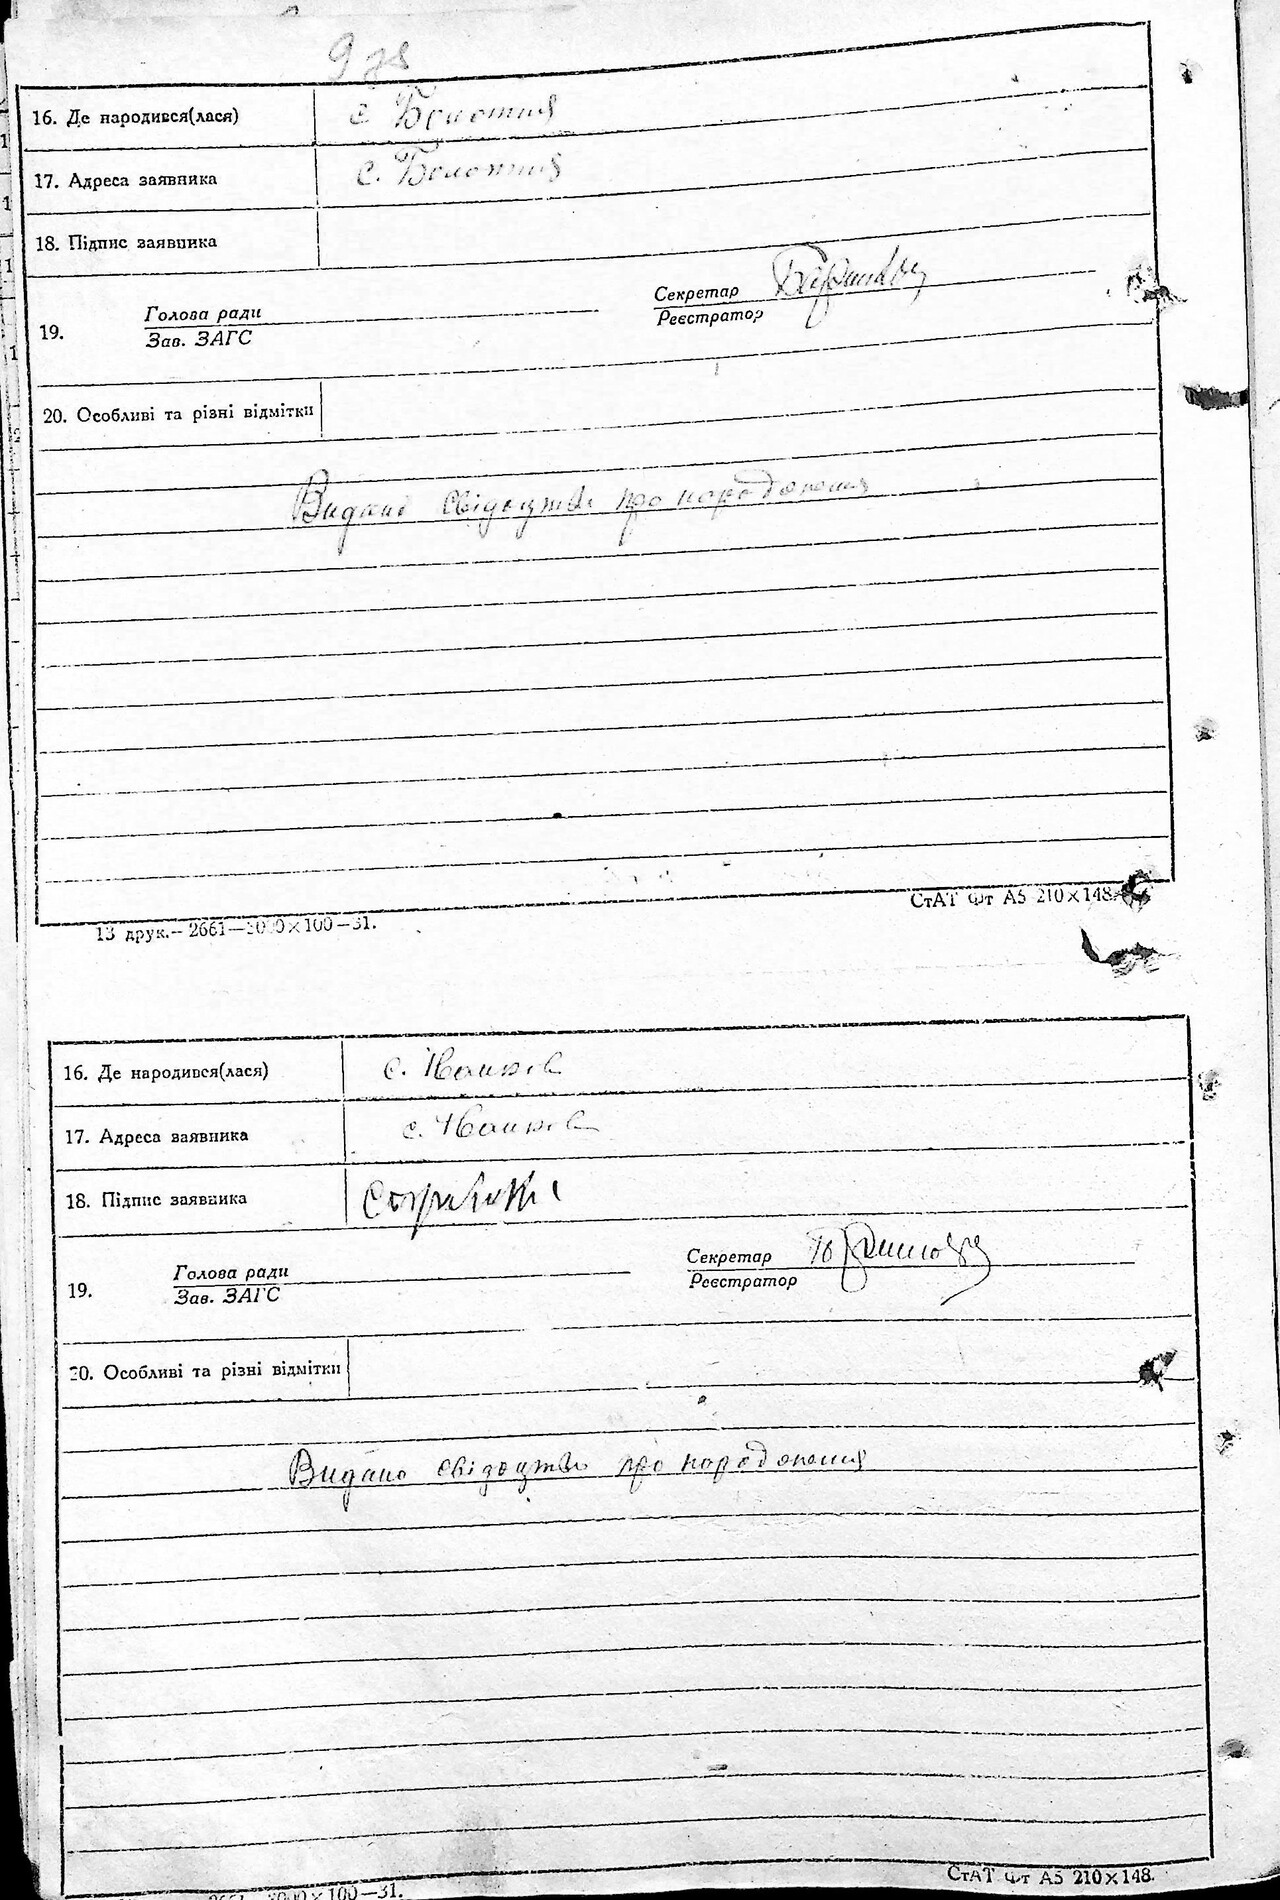 16. Де народився(лася) с. Болотня
17. Адреса заявника с. Болотня
18. Підпис заявника
Секретар
Голова ради
Реєстратор
19.
Зав. ЗАГС
20. Особливі та різні відмітки
Видано свідоцтво про народження
СтАТ Фт А5 210×148.
13 друк.– 2661—3000×100—31.
16. Де народився(лася) с.
17. Адреса заявника с.
18. Підпис заявника
Секретар
Голова ради
Реєстратор
19.
Зав. ЗАГС
20. Особливі та різні відмітки
Видано свідоцтво про народження
СтАТ Фт А5 210×148.
2661—3000×100—31.